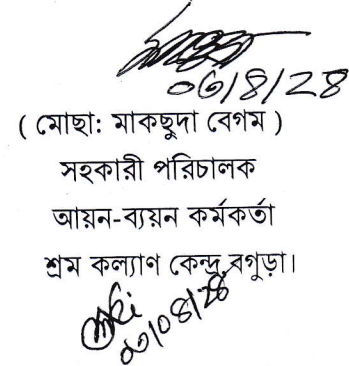 ০৩/৪/২৪
( মোছা: মাকছুদা বেগম )
সহকারী পরিচালক
আয়ন-ব্যয়ন কর্মকর্তা
শ্রম কল্যাণ কেন্দ্র, বগুড়া।